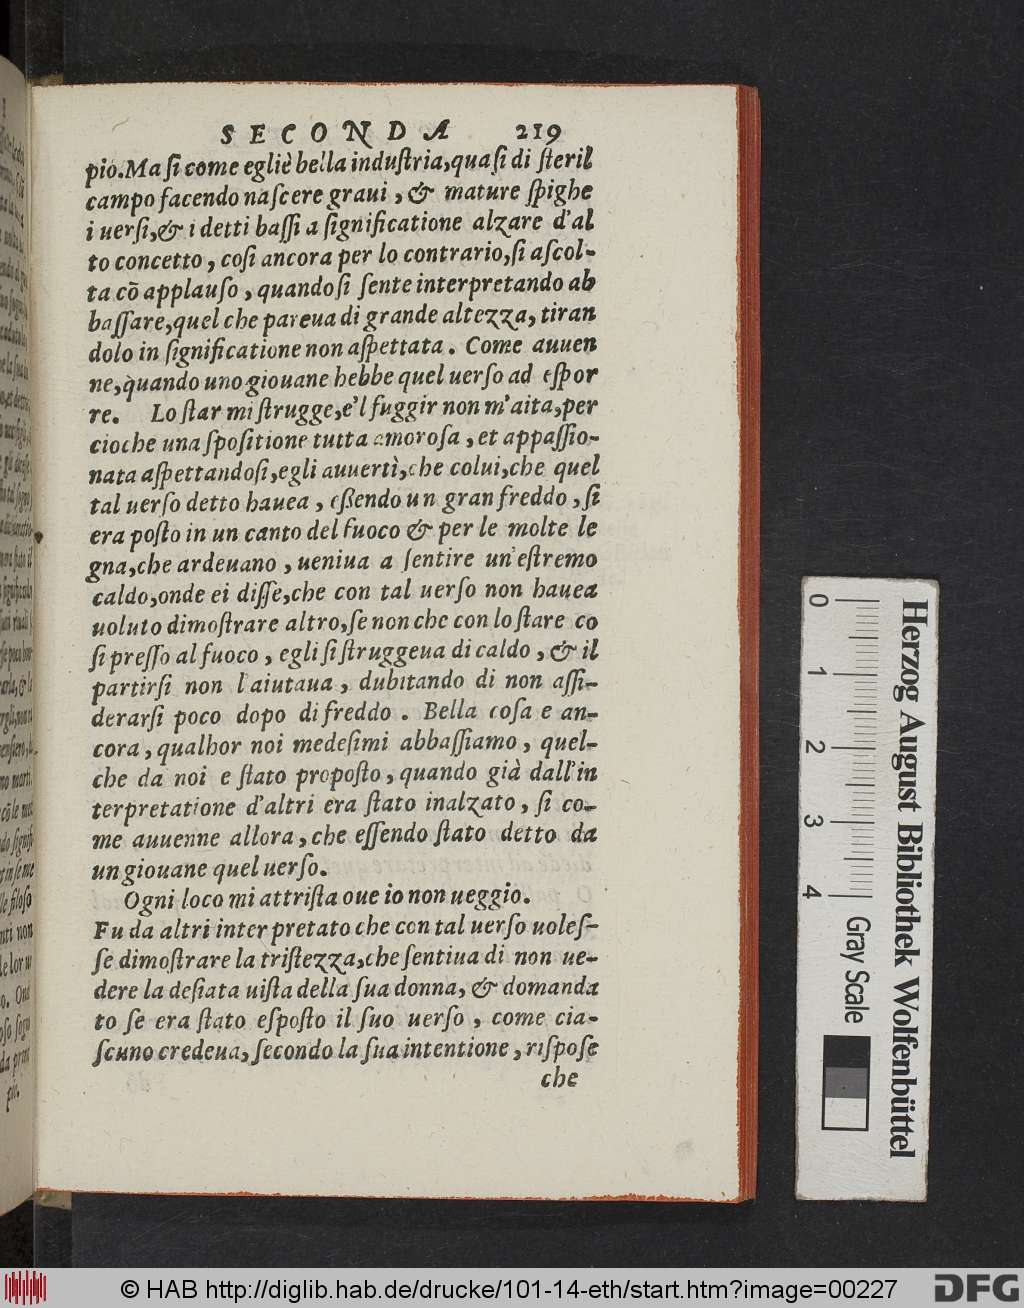 SECONDA 219
pio. Ma si come egliè bella industria, quasi di steril
campo facendo nascere graui, & mature spighe
i uersi, & i detti bassi a significatione alzare d'al
to concetto, cosi ancora per lo contrario, si ascol-
ta cō applauso, quando si sente interpretando ab
bassare, quel che pareua di grande altezza, tiran
dolo in significatione non aspettata. Come auuen
ne, quando uno giouane hebbe quel uerso ad espor
re. Lo star mi strugge, e'l fuggir non m'aita, per
cioche una spositione tutta amorosa, et appassio-
nata aspettandosi, egli auuertì, che colui, che quel
tal uerso detto hauea, essendo un gran freddo, si
era posto in un canto del fuoco & per le molte le
gna, che ardeuano, ueniua a sentire un'estremo
caldo, onde ei disse, che con tal uerso non hauea
uoluto dimostrare altro, se non che con lo stare co
si presso al fuoco, egli si struggeua di caldo, & il
partirsi non l'aiutaua, dubitando di non assi-
derarsi poco dopo di freddo. Bella cosa e an-
cora, qualhor noi medesimi abbassiamo, quel-
che da noi e stato proposto, quando già dall'in
terpretatione d'altri era stato inalzato, si co-
me auuenne allora, che essendo stato detto da
un giouane quel uerso.
Ogni loco mi attrista oue io non ueggio.
Fu da altri interpretato che con tal uerso uoles-
se dimostrare la tristezza, che sentiua di non ue-
dere la desiata uista della sua donna, & domanda
to se era stato esposto il suo uerso, come cia-
scuno credeua, secondo la sua intentione, rispose
che
0 1 2 3 4
Gray Scale
Herzog August Bibliothek Wolfenbüttel
© HAB http://diglib.hab.de/drucke/101-14-eth/start.htm?image=00227
DFG